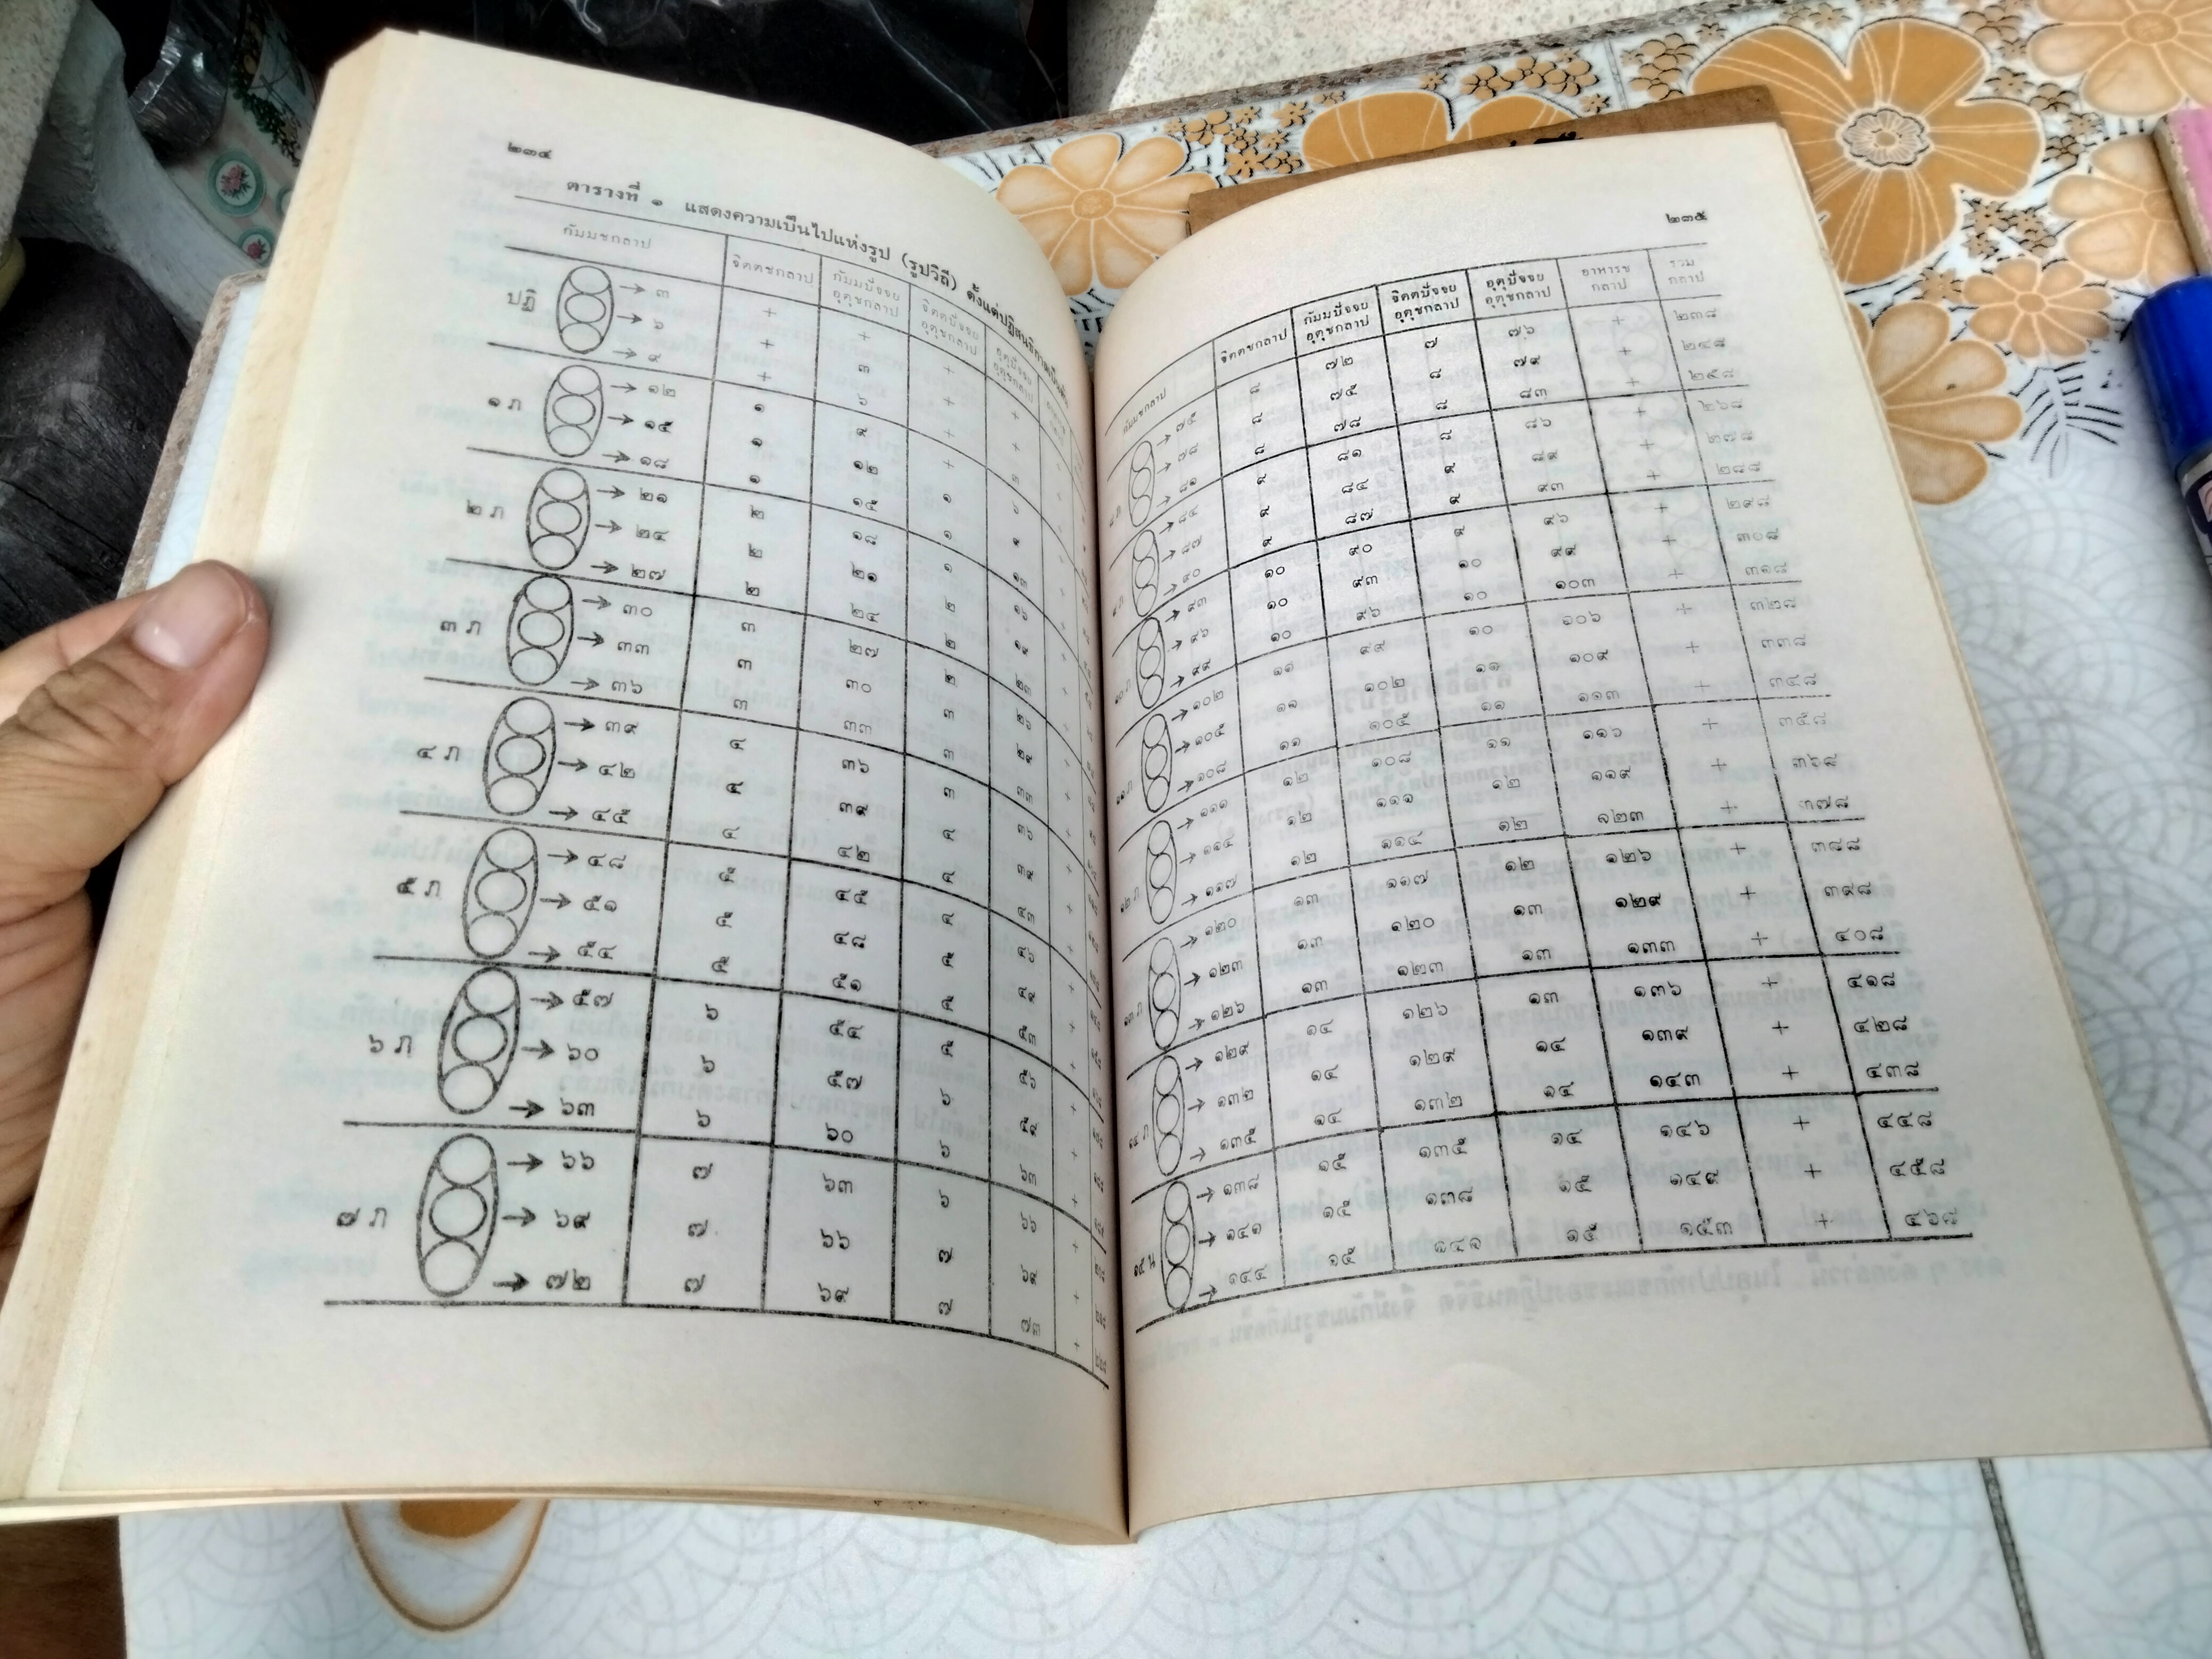 ๒๓๔
ตารางที่ ๑ แสดงความเป็นไปแห่งรูป (รูปวิถี) ตั้งแต่ปฏิสนธิกาลเป็นต้น
กัมมชกลาป จิตตชกลาป กัมมปัจจย อุตุชกลาป จิตตปัจจย อุตุชกลาป อุตุปัจจย อุตุชกลาป
→ ๓ + + + +
ปฏิ → ๖ + ๓ + +
→ ๙ + ๖ + ๓
→ ๑๒ ๑ ๙ + ๖
๑ ภ → ๑๕ ๑ ๑๒ ๑ ๙
→ ๑๘ ๑ ๑๕ ๑ ๑๓
→ ๒๑ ๒ ๑๘ ๑ ๑๖
๒ ภ → ๒๔ ๒ ๒๑ ๒ ๑๙
→ ๒๗ ๒ ๒๔ ๒ ๒๓
→ ๓๐ ๓ ๒๗ ๒ ๒๖
๓ ภ → ๓๓ ๓ ๓๐ ๓ ๒๙
→ ๓๖ ๓ ๓๓ ๓ ๓๓
→ ๓๙ ๔ ๓๖ ๓ ๓๖
๔ ภ → ๔๒ ๔ ๓๙ ๔ ๓๙
→ ๔๕ ๔ ๔๒ ๔ ๔๓
→ ๔๘ ๕ ๔๕ ๔ ๔๖
๕ ภ → ๕๑ ๕ ๔๘ ๕ ๔๙
→ ๕๔ ๕ ๕๑ ๕ ๕๓
→ ๕๗ ๖ ๕๔ ๕ ๕๖
๖ ภ → ๖๐ ๖ ๕๗ ๖ ๕๙
→ ๖๓ ๖ ๖๐ ๖ ๖๓
→ ๖๖ ๗ ๖๓ ๖ ๖๖
๗ ภ → ๖๙ ๗ ๖๖ ๗ ๖๙
→ ๗๒ ๗ ๖๙ ๗ ๗๓
๒๓๕
กัมมชกลาป จิตตชกลาป กัมมปัจจย อุตุชกลาป จิตตปัจจย อุตุชกลาป อุตุปัจจย อุตุชกลาป อาหารช กลาป รวม กลาป
→ ๗๕ ๘ ๗๒ ๗ ๗๖ + ๒๓๘
๘ ภ → ๗๘ ๘ ๗๕ ๘ ๗๙ + ๒๔๘
→ ๘๑ ๘ ๗๘ ๘ ๘๓ + ๒๕๘
→ ๘๔ ๙ ๘๑ ๘ ๘๖ + ๒๖๘
๙ ภ → ๘๗ ๙ ๘๔ ๙ ๘๙ + ๒๗๘
→ ๙๐ ๙ ๘๗ ๙ ๙๓ + ๒๘๘
→ ๙๓ ๑๐ ๙๐ ๙ ๙๖ + ๒๙๘
๑๐ ภ → ๙๖ ๑๐ ๙๓ ๑๐ ๙๙ + ๓๐๘
→ ๙๙ ๑๐ ๙๖ ๑๐ ๑๐๓ + ๓๑๘
→ ๑๐๒ ๑๑ ๙๙ ๑๐ ๑๐๖ + ๓๒๘
๑๑ ภ → ๑๐๕ ๑๑ ๑๐๒ ๑๑ ๑๐๙ + ๓๓๘
→ ๑๐๘ ๑๑ ๑๐๕ ๑๑ ๑๑๓ + ๓๔๘
→ ๑๑๑ ๑๒ ๑๐๘ ๑๑ ๑๑๖ + ๓๕๘
๑๒ ภ → ๑๑๔ ๑๒ ๑๑๑ ๑๒ ๑๑๙ + ๓๖๘
→ ๑๑๗ ๑๒ ๑๑๔ ๑๒ ๑๒๓ + ๓๗๘
→ ๑๒๐ ๑๓ ๑๑๗ ๑๒ ๑๒๖ + ๓๘๘
๑๓ ภ → ๑๒๓ ๑๓ ๑๒๐ ๑๓ ๑๒๙ + ๓๙๘
→ ๑๒๖ ๑๓ ๑๒๓ ๑๓ ๑๓๓ + ๔๐๘
→ ๑๒๙ ๑๔ ๑๒๖ ๑๓ ๑๓๖ + ๔๑๘
๑๔ ภ → ๑๓๒ ๑๔ ๑๒๙ ๑๔ ๑๓๙ + ๔๒๘
→ ๑๓๕ ๑๔ ๑๓๒ ๑๔ ๑๔๓ + ๔๓๘
→ ๑๓๘ ๑๕ ๑๓๕ ๑๔ ๑๔๖ + ๔๔๘
๑๕ น → ๑๔๑ ๑๕ ๑๓๘ ๑๕ ๑๔๙ + ๔๕๘
→ ๑๔๔ ๑๕ ๑๔๑ ๑๕ ๑๕๓ + ๔๖๘